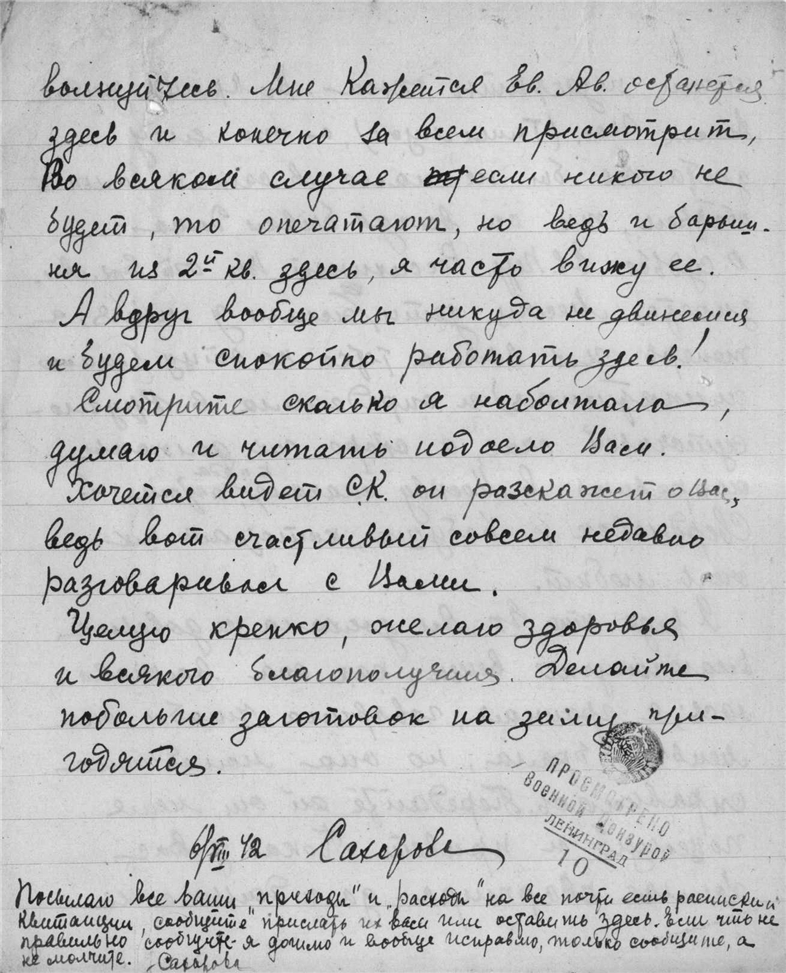 волнуйтесь. Мне кажется Ев. Ав. останется
здесь и конечно за всем присмотрит,
Во всяком случае если никого не
будет, то опечатают, но ведь и барыш-
ня из 2й кв. здесь, я часто вижу ее.
А вдруг вообще мы никуда не двинемся
и будем спокойно работать здесь!
Смотрите сколько я наболтала,
думаю и читать надоело Вам.
Хочется видет С.К. он разскажет о Вас,
ведь вот счастливый совсем недавно
разговаривал с Вами.
Целую крепко, желаю здоровья
и всякого благополучия. Делайте
побольше заготовок на зиму при-
годятся.
ПРОСМОТРЕНО
Военной Цензурой
ЛЕНИНГРАД
10
6/VIII 42 Сахарова
Посылаю все ваши "приходы" и "расходы" на все почти есть расписки и
квитанции, сообщите прислать их вам или оставить здесь. Если что не
правильно сообщите я дошлю и вообще исправлю, только сообщите, а
не молчите. Сахарова